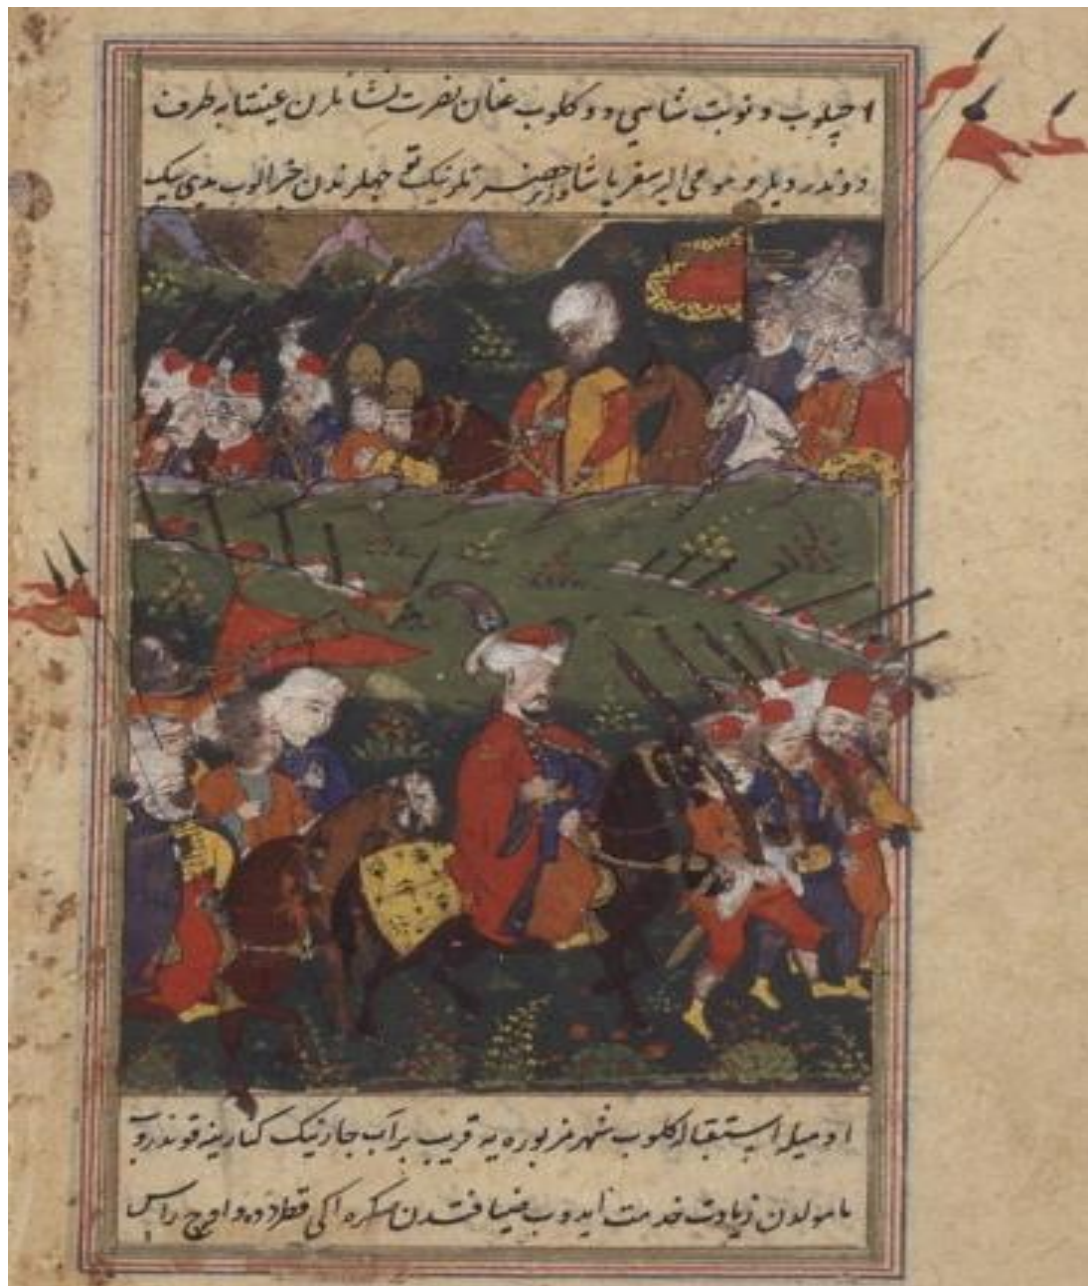 اچیلوب و نوبت شاهی دوکلوب عنان نصرت نشانلرن عینتابه طرف
دوندردیلر و مومی الیه سفر پاشا حضرتلرینک خبر الوب یدی بیک
ایله استقبال کلوب شهر مزبوره یه قریب بر آب جارینک کنارینه قوندروب
مامولدن زیاده خدمت ایدوب ضیافتدن صکره ایکی قطار دوه و اوچ راس